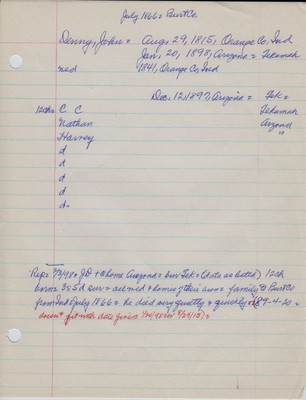 July 1866 = Burt Co
Denny, John = Aug. 29, 1815, Orange Co, Ind
Jan. 20, 1898, Arizona = Tekamah
md 1841, Orange Co, Ind
Dec. 12, 1897, Arizona = Tek =
12ch: C C Tekamah
Nathan Arizona
Harvey "
d
d
d
d
d.
Rep: = JD + @ home Arizona = bur Tek = (date as listed) 12ch
born = 3 = 5d sur = all md + homes of their own = family to Burt Co
from Ind July 1866 = he died very quietly + quickly = (89-4-20 =
doesn't fit with date given